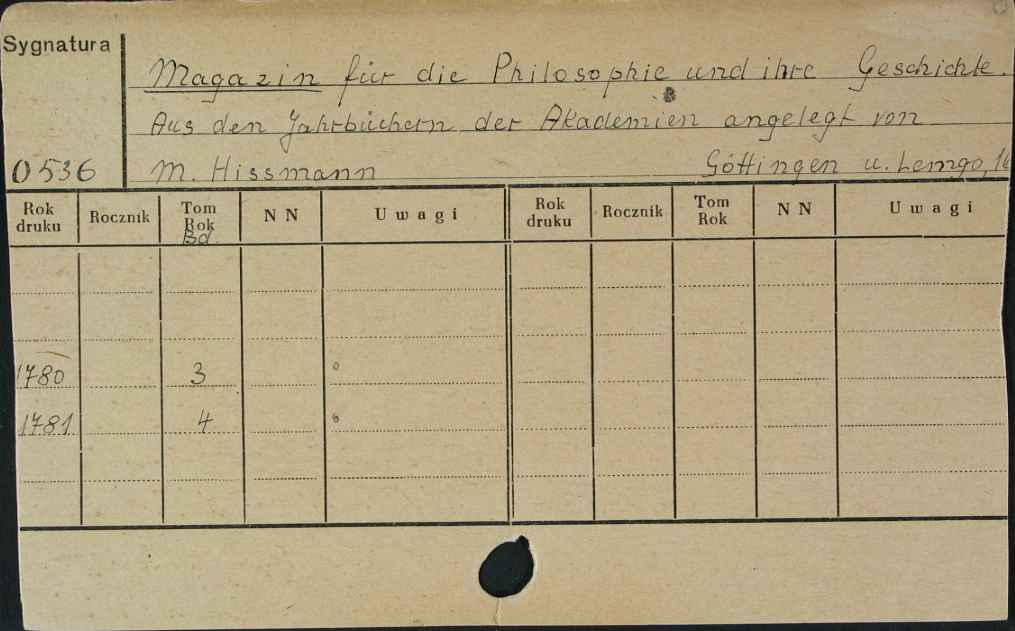 Sygnatura
Magazin für die Philosophie und ihre Geschichte.
Aus den Jahrbüchern der Akademien angelegt von
0536 M. Hissmann Göttingen u. Lemgo,
Rok druku Rocznik Tom Rok Bd. N N U w a g i Rok druku Rocznik Tom Rok N N U w a g i
1780 3 0
1781 4